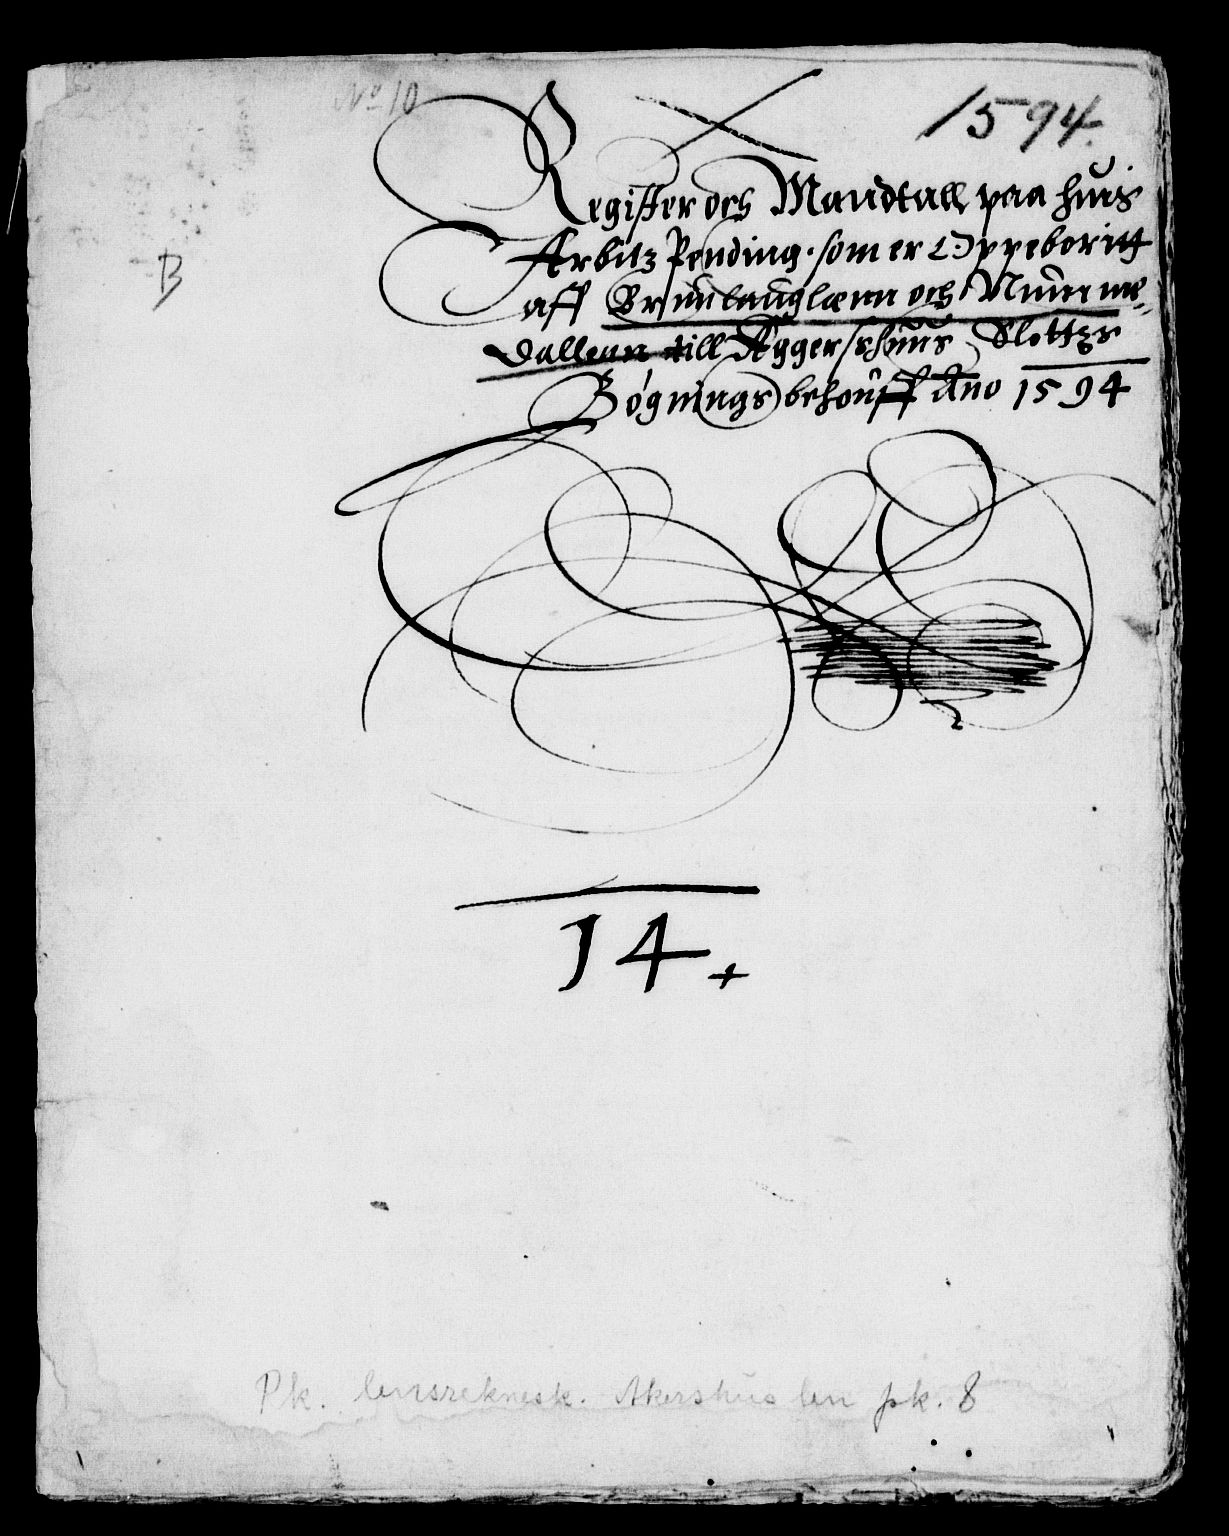 No 10
1594.
Register och Mandtall paa huis
Arbitz Pending som er Oppeboritt
aff Brunlauglænn och Numme-
dallenn till Aggershuus Slottzs
Bögnings behouff Ano 1594
B
14
Pk. lensreknesk. Akershus len pk. 8